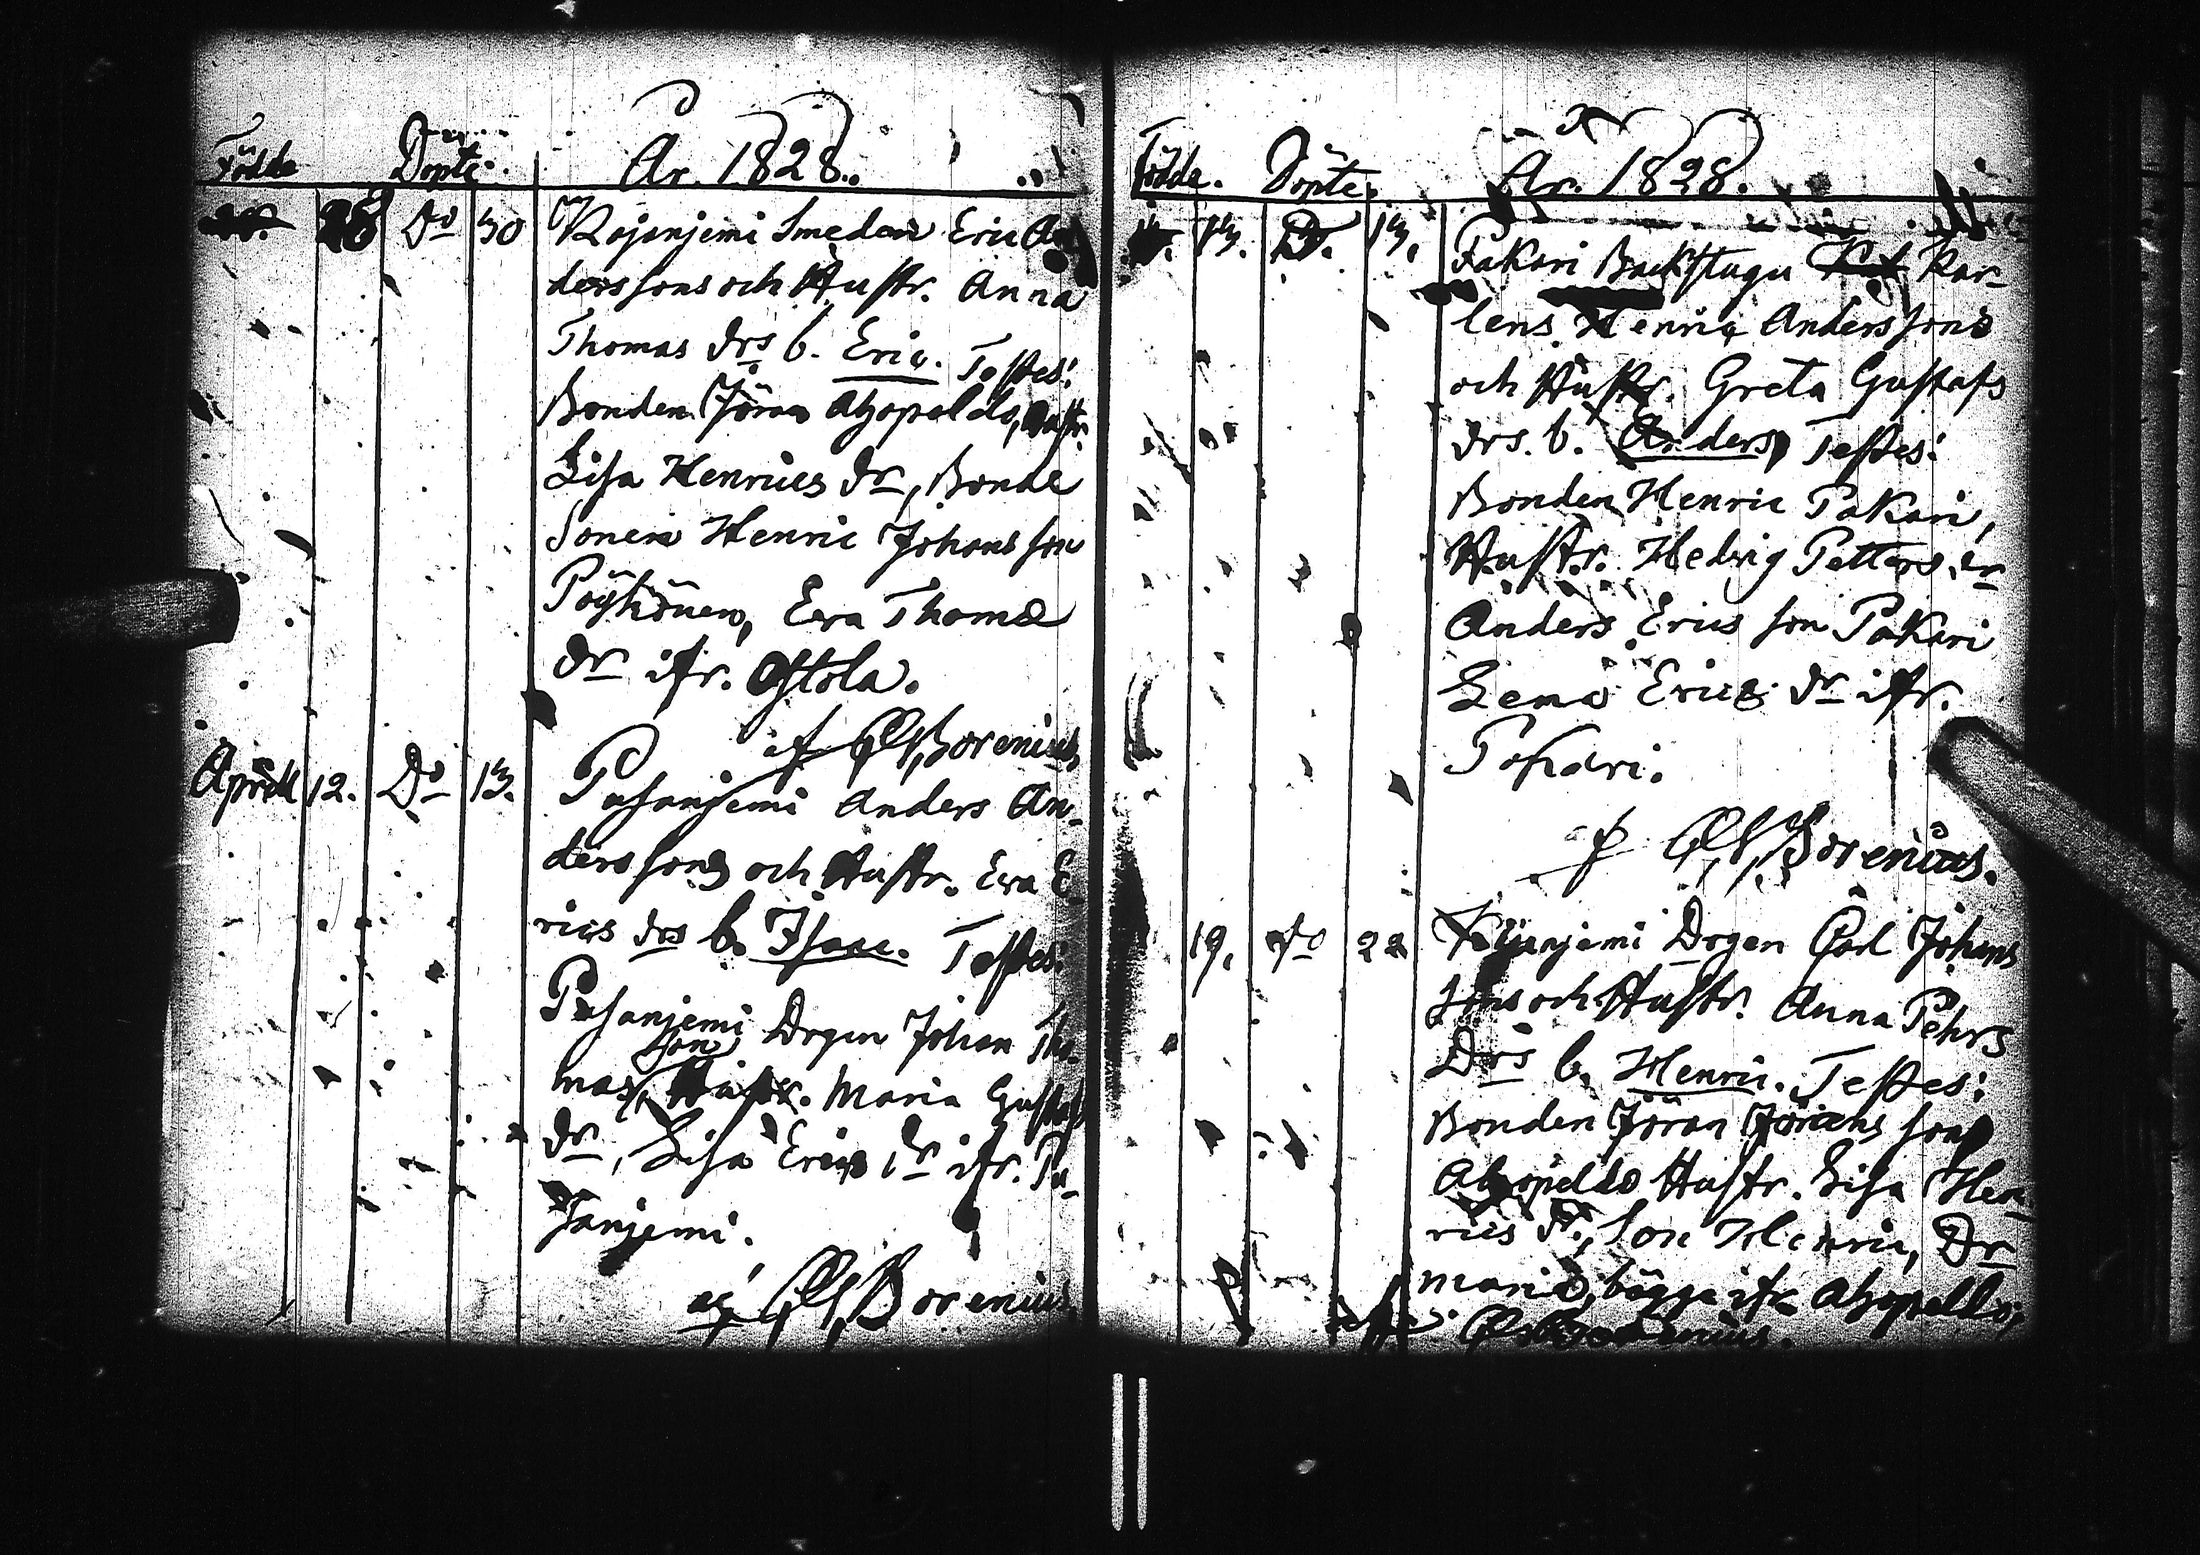 Födde Döpte. År. 1828.
28 Do 30 Kojanjemi Smeden Eric An
derssons och Hustr. Anna
Thomas drs b. Eric. Testes:
Bonden Jöran Ahopeldo, Hustr.
Lisa Henrics dr, Bonde
Sonen Henric Johansson
Pöyhönen, Eva Thomæ
dr ifr. Ostola.
af Borenius
Aprill 12. Do 13. Pusanjemi Anders An-
derssons och Hustr. Eva E-
rics drs b. Isaac. Testes:
Pusanjemi Drgen Johan Tho-
son
mas, Hustr. Maria Gustafs
dr, Lisa Erics dr ifr. Pu-
sanjemi.
Borenius
Födde. Döpte. År. 1828.
13. D. 13. Pakari Backstugu Kar-
lens Henric Anderssons
och Hustr. Greta Gustafs
drs. b. Anders, Testes:
Bonden Henric Pakari,
Hustr. Hedvig Petters dr
Anders Ericsson Pakari
Lena Erics dr ifr.
Pakari.
Borenius.
19. do 22 Drgen Carl Johans
sons och Hustr. Anna Pehrs
Drs b. Henric. Testes:
Bonden Jöran Jöransson
Ahopeldo Hustr. Lisa Hen-
rics dr, Son Henric, Dr
Maria, bägge ifr Ahopeldo,
Borenius.